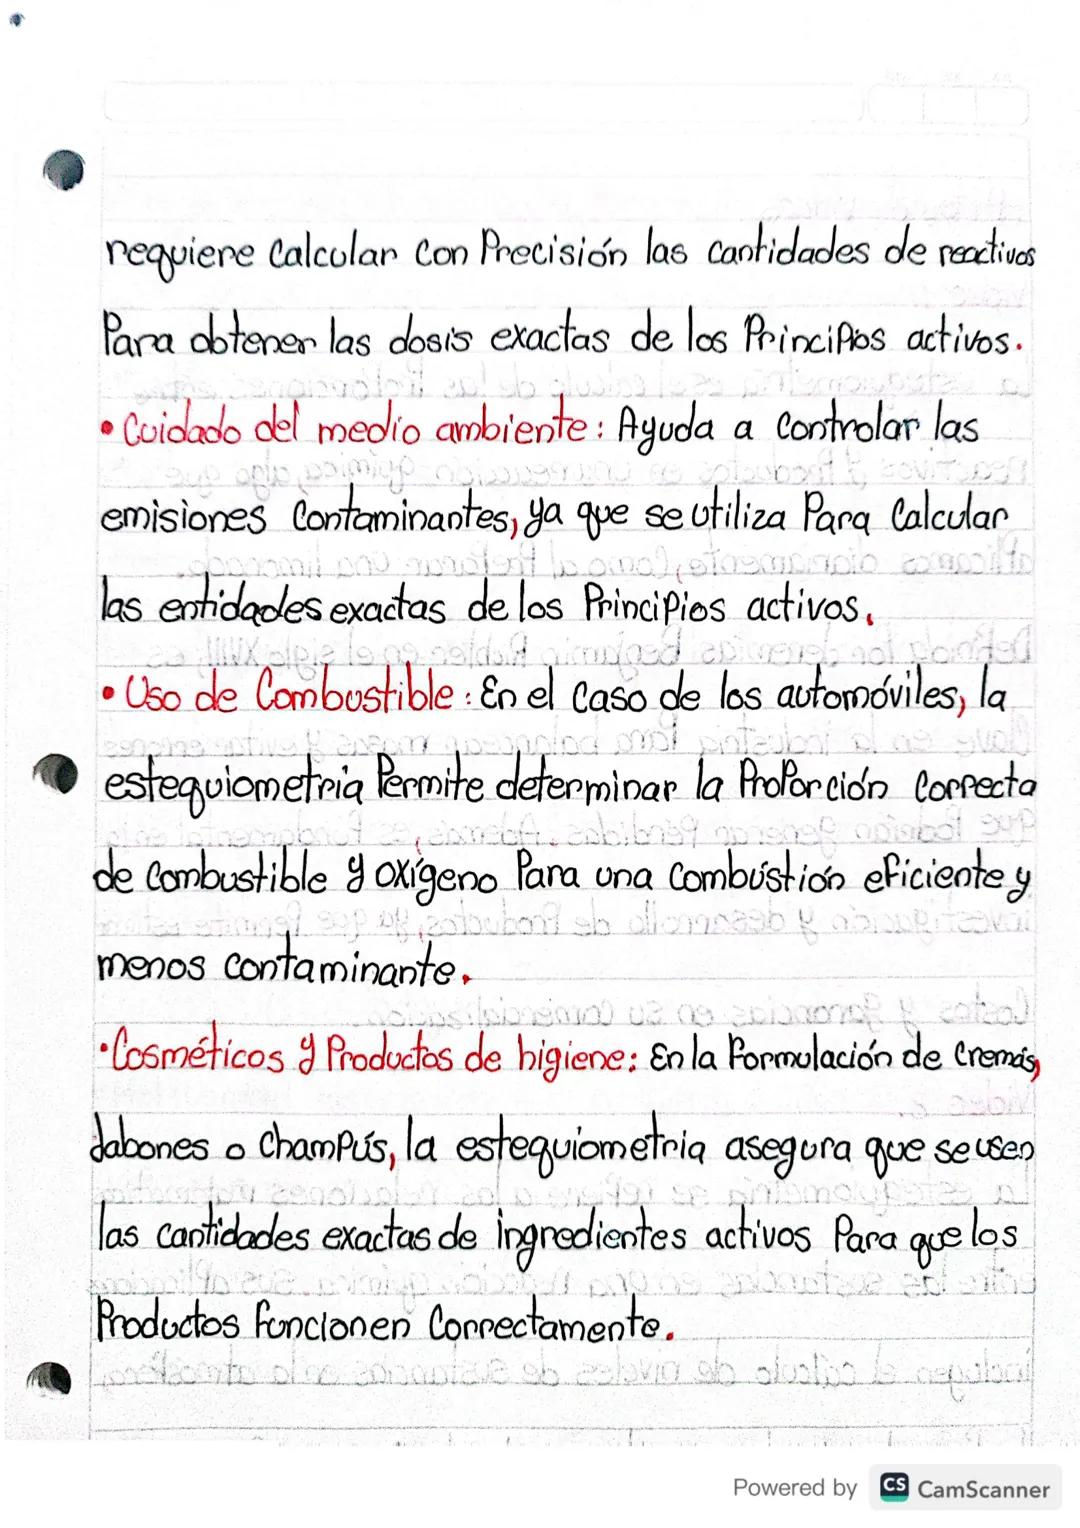 requiere Calcular Con Precisión las cantidades de reactivos
Para obtener las dosis exactas de los Principios activos.
• Cuidado del medio ambiente: Ayuda a Controlar las
emisiones Contaminantes, ya que se utiliza Para Calcular
las entidades exactas de los Principios activos.
• Uso de Combustible: En el Caso de los automóviles, la
estequiometria Permite determinar la Proporción Correcta
de Combustible y oxígeno Para una Combustión eficiente y
menos contaminante.
• Cosméticos y Productos de higiene: En la Formulación de Cremas,
Jabones o Champús, la estequiometria asegura que se usen
las cantidades exactas de ingredientes activos Para que los
Productos Funcionen Correctamente.
Powered by CS CamScanner